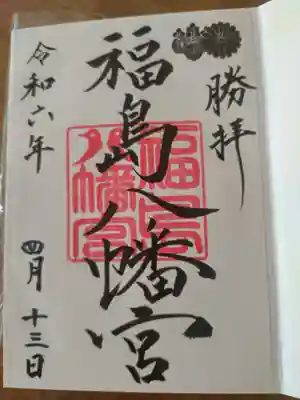 勝拝
福島八幡宮
福島八幡宮
令和六年 四月 十三日